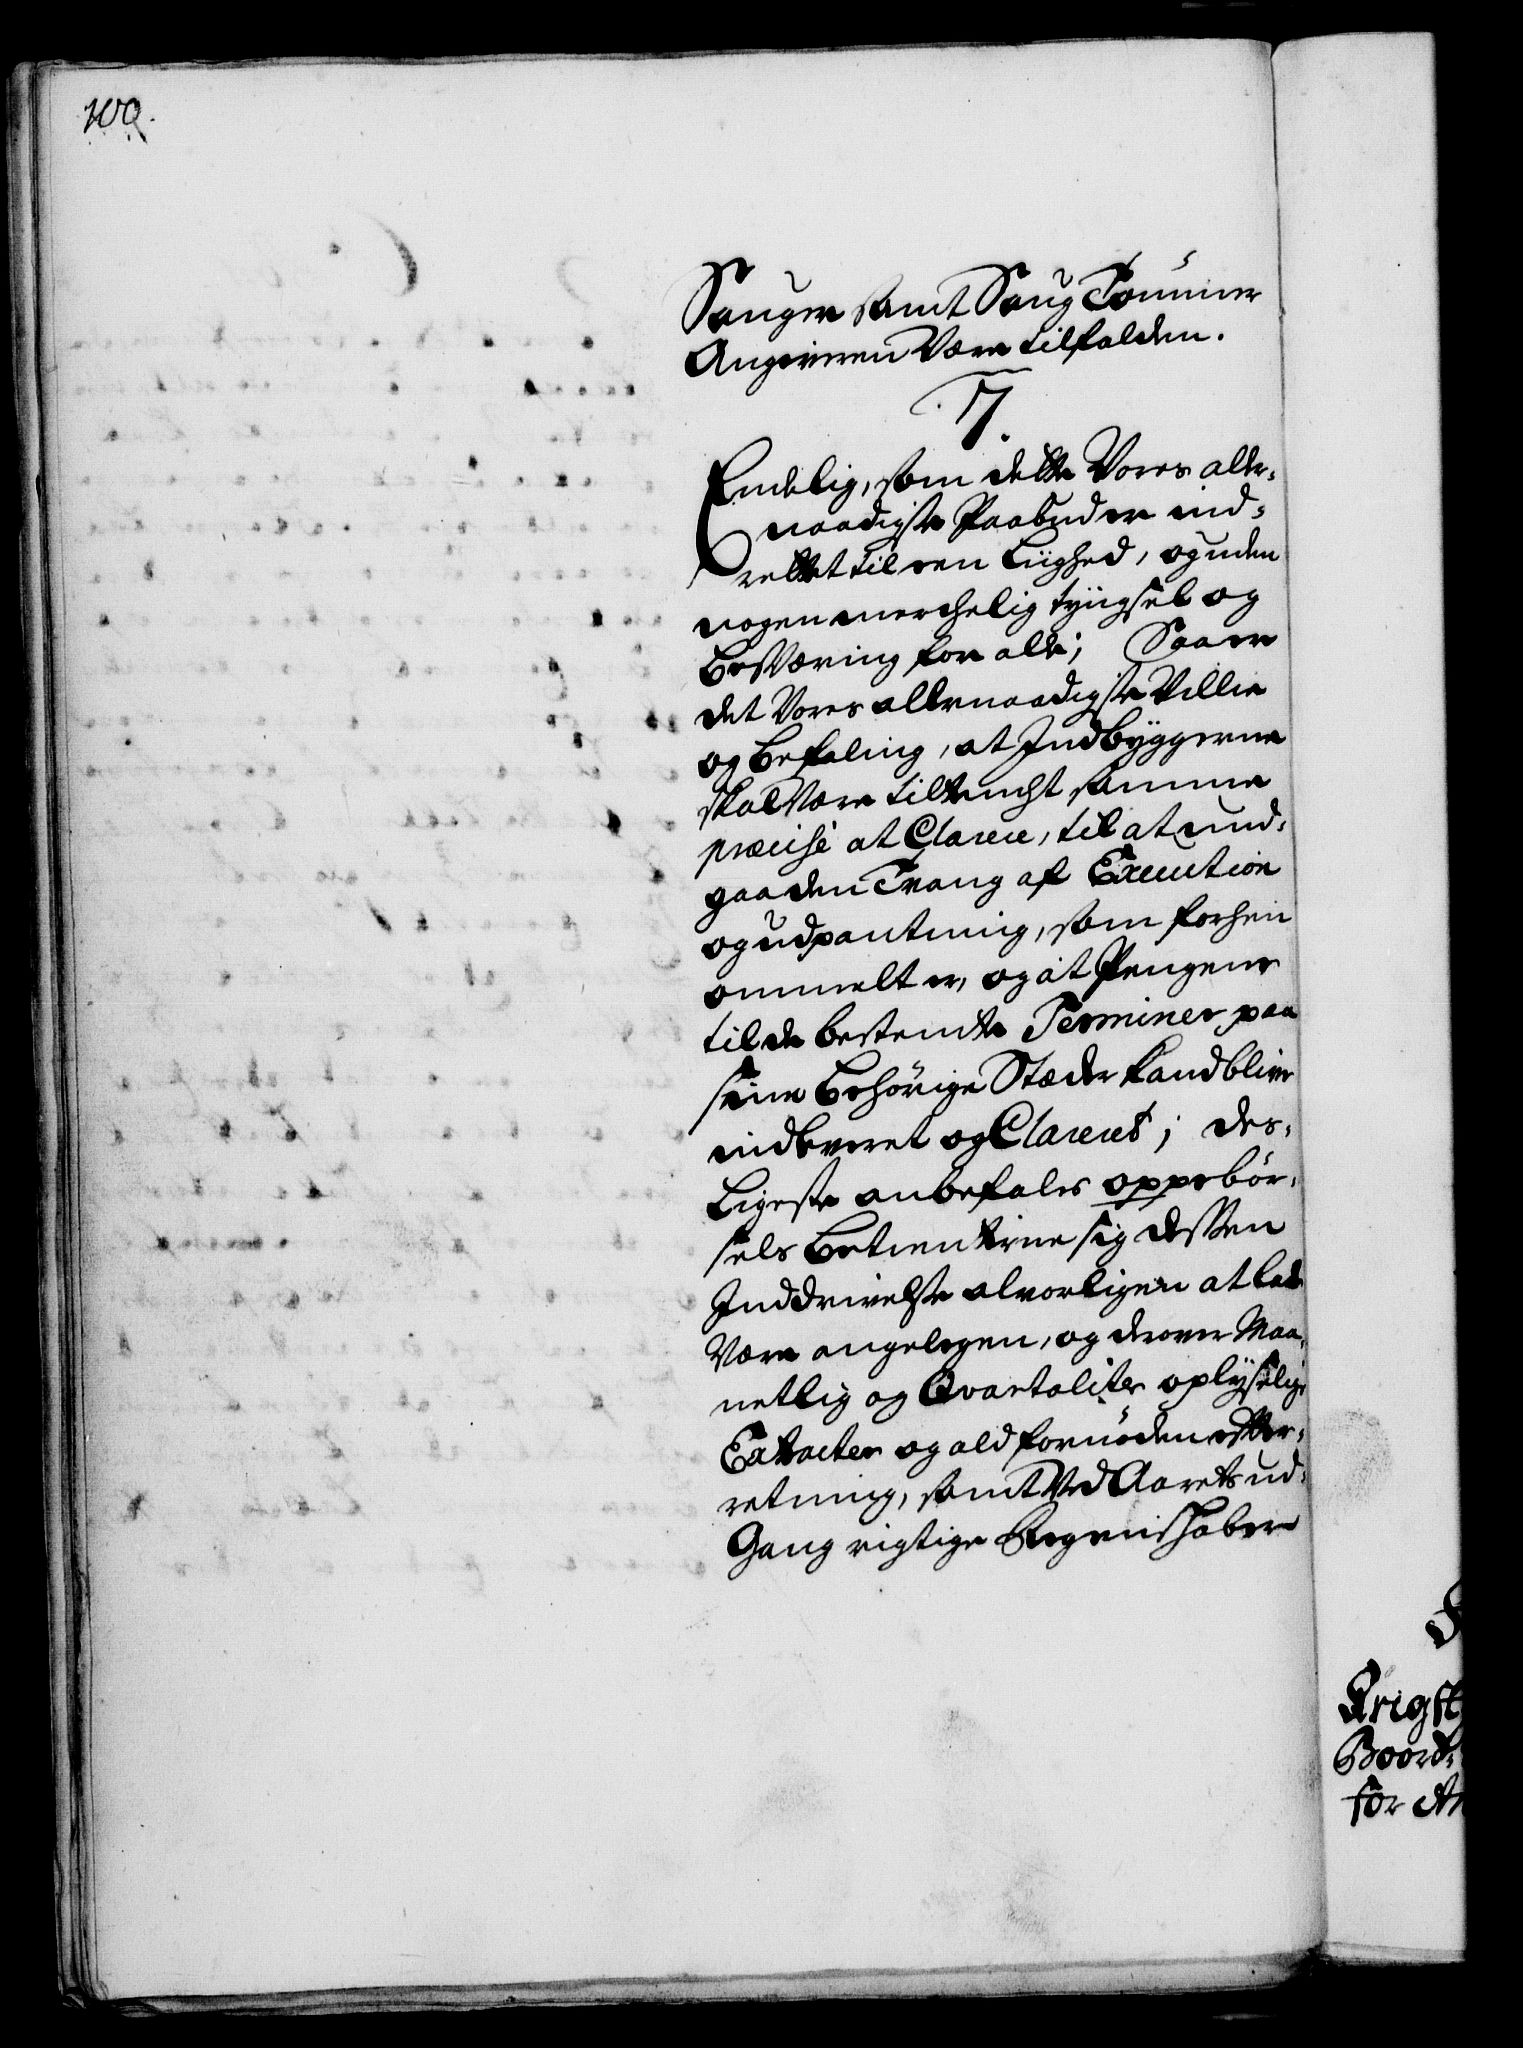 100.
Sauger samt Saug Tommer
Angiveren Være tilfalden.
7.
Endelig, som dette Vores aller-
naadigste Paabud er ind-
rettet til een Liighed, og uden
nogen merchelig tyngsel og
besværing for alle; Saa er
det Vores allernaadigste Villie
og befaling, at Indbyggerne
skal Være tiltencht samme
præcisè at Clarere, til at und-
gaa den Tvang af Execution
og udpantning, som forhen
ommelt er, og at Pengene
til de bestemte Terminer paa
sine behörige Stæder kand blive
indleveret og Clareret; des-
ligeste anbefales oppebör-
sels betienterne sig dessen
Inddrivelse alvorligen at lade
Være angelegen, og derover Maa-
netlig og Qvartaliter oplyselige
Extracter og ald fornöden efter-
retning, samt Ved Aarets ud-
Gang rigtige Regenskaber
Krigst
Boord-
for An